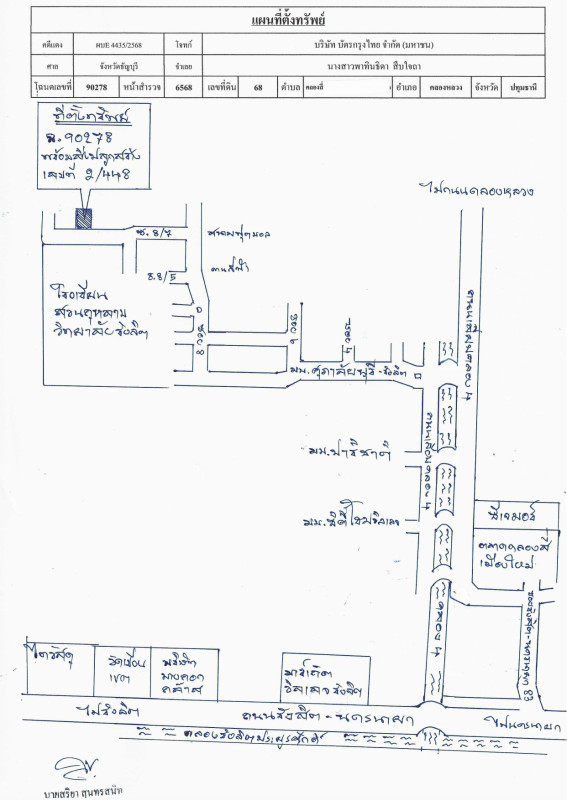 แผนที่ตั้งทรัพย์
คดีแดง ผบE 4435/2568 โจทก์ บริษัท บัตรกรุงไทย จำกัด (มหาชน)
ศาล จังหวัดธัญบุรี จำเลย นางสาวพาทินธิดา สืบใจถา
โฉนดเลขที่ 90278 หน้าสำรวจ 6568 เลขที่ดิน 68 ตำบล คลองสี่ อำเภอ คลองหลวง จังหวัด ปทุมธานี
ที่ตั้งทรัพย์
ฉ.90278
พร้อมสิ่งปลูกสร้าง
เลขที่ 2/448
ไปถนนคลองหลวง
ซ.8/7
ซ.8/5
โรงเรียน
สวนกุหลาบ
วิทยาลัย รังสิต
ซอย 8
ซอย 6
ซอย 4
มบ.ศุภาลัยบุรี-รังสิต
ถนนเลียบคลอง 4
ถนนเลียบคลอง 4
มบ.ปาริชาติ
ตลาดคลองสี่
เมืองใหม่
คลอง 4
ไทวัสดุ
มาร์เก็ต
วิลเลจรังสิต
ไปรังสิต
ถนนรังสิต-นครนายก
ไปนครนายก
คลองรังสิตประยูรศักดิ์
นายสริยา สุนทรสนิท